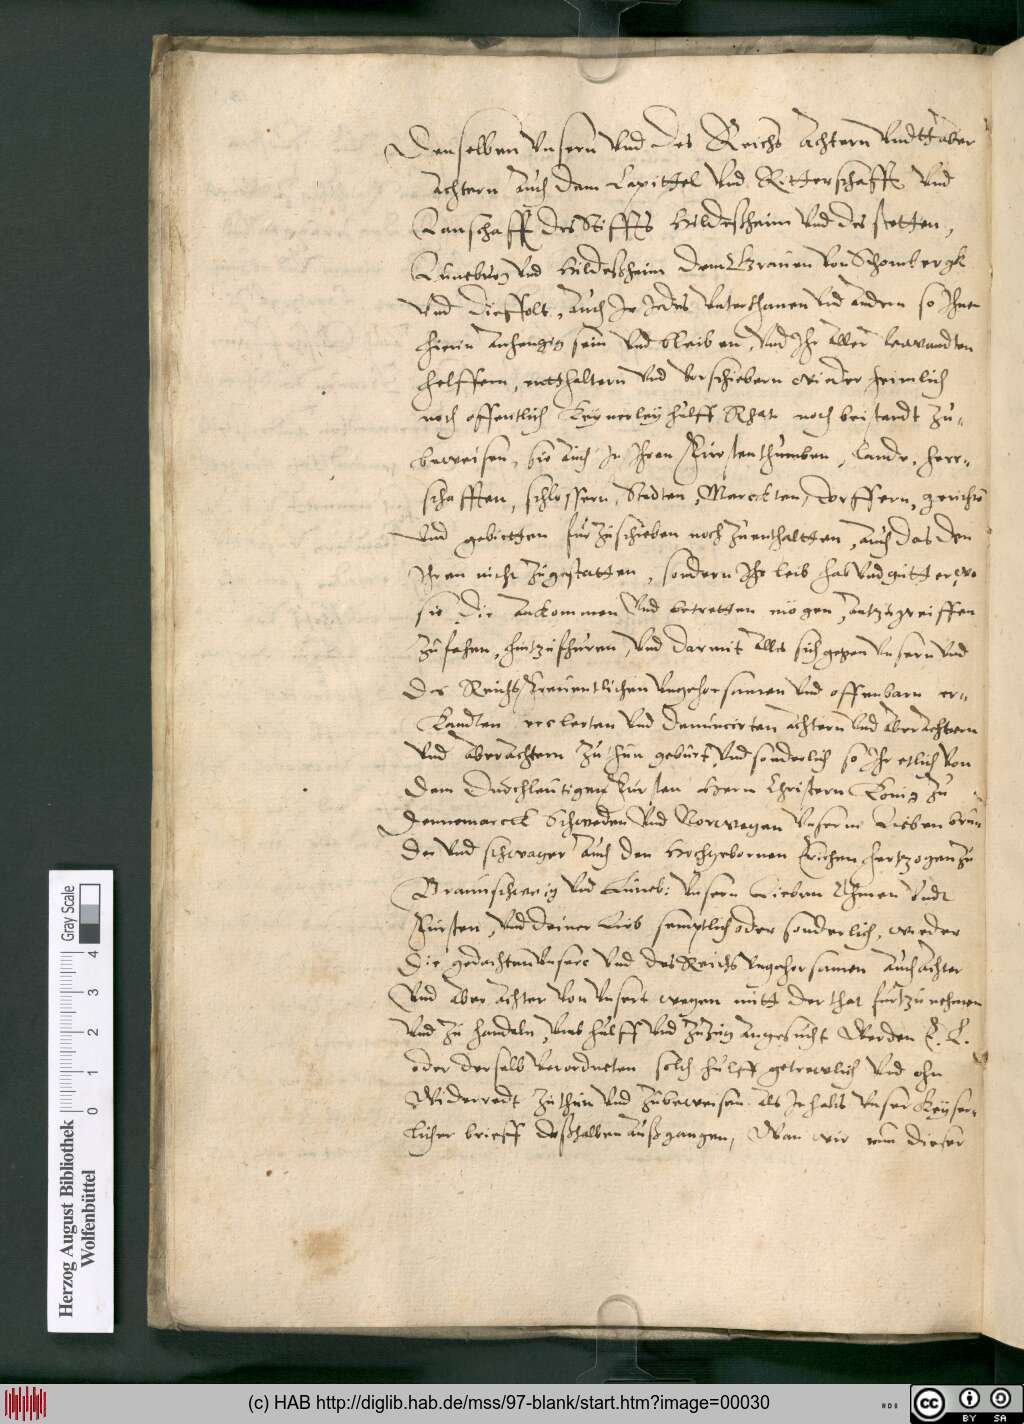 Denselben unsern und des Reichs achtern undtt aber
achtern auch dem Capittel und Ritterschafft und
Lanschafft des Stiffts Hildeßheim und des stetten,
Luneburg und Hildeßheim dem Graven von Schombergk
und Dieffolt, auch Ir Jedes underthanen und andern so Ihnen
hierin anhengig sein und bleiben, und Ihr aller verwandten
helffern, entthaltern und vorschiebern wieder heimlich
noch offentlich keynerley hulff Rhat noch beistandt zu-
beweisen, sie auch in Ihren Fürstenthumben, lande, herr-
schafften, schlossern, Stedten, Marckten, dorffern, gerichten
und gebietten fur zuschieben noch zuenthaltten, auch das den
Ihren nicht zugestatten, sondern Ihr leib hab und gütter, wo
sie die ankommen und betretten mögen, antzugreiffen
zufahen, hintzufhuren, und darmit alles sich gegen unsern und
des Reichs freventlichen ungehorsamen und offenbarn er-
kandten erclerten und denuncirten achtern und aberachtern
und aberachtern zuthun geburt, und sonderlich so Ihr etlich von
dem Durchleutigen Fursten Hern Christern König zu
Dennemarck Schweden und Norwegen unserm Lieben bru-
der und schwager auch den Hochgebornen Erichen hertzogen zu
Braunschweig und Luneb: unsern Lieben Ohmen undt
Fursten, und deiner Lieb semptlich oder sonderlich, wieder
die gedachten unsere und des Reichs ungehorsamen auch achter
und aber achter von unsert wegen mitt der that furtzunehmen
und zu handeln, umb hulff und zuzug angesucht werden E. L.
oder derselb verordneten solch hulff getrewlich und ohn
Widerredt zuthun und zubeweisen, als Inhalts unser Keyser-
licher brieff deßhalben außgangen, Wan wir nun dieser
Herzog August Bibliothek
Wolfenbüttel
0 1 2 3 4
Gray Scale
(c) HAB http://diglib.hab.de/mss/97-blank/start.htm?image=00030
HAB
cc BY SA